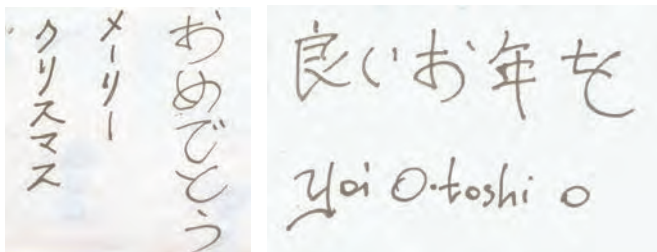 おめでとう
メーリー
クリスマス
良いお年を
yoi O-toshi o